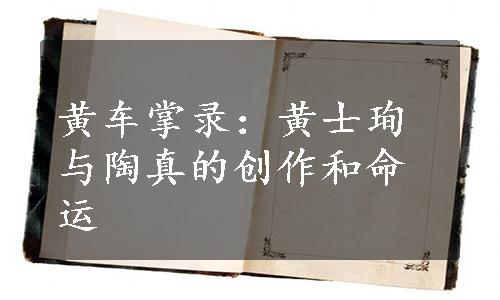 黄车掌录：黄士珣
与陶真的创作和命
运